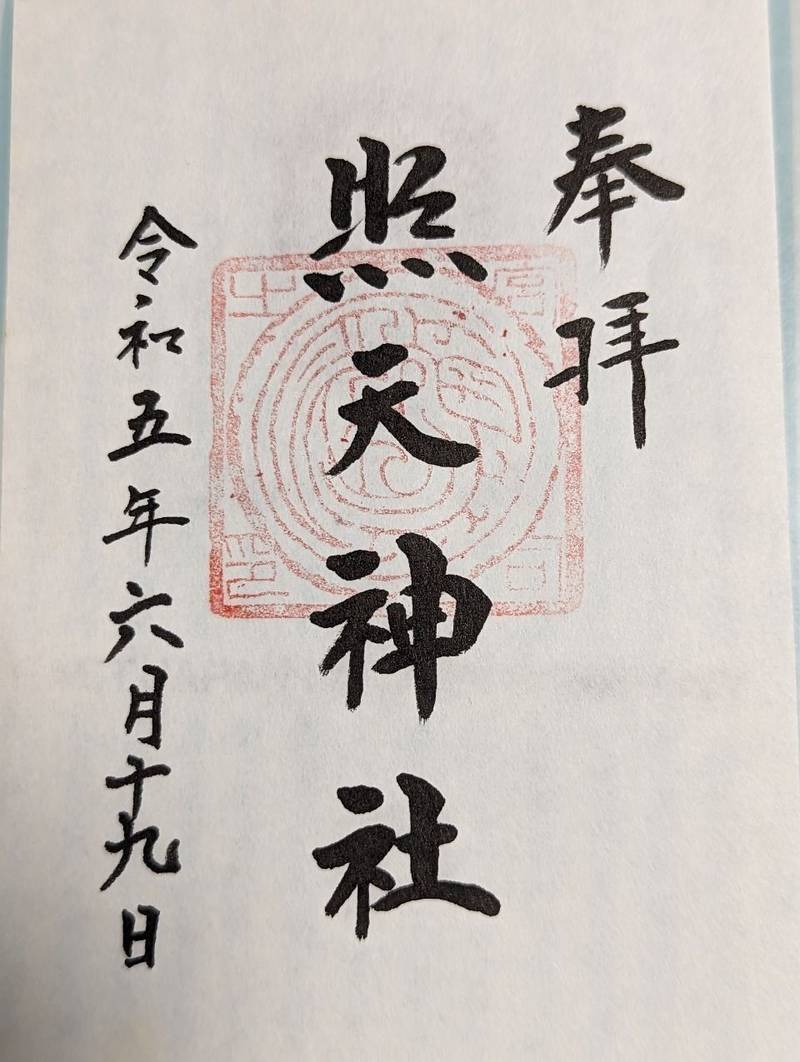 奉拝
照天神社
令和五年六月十九日